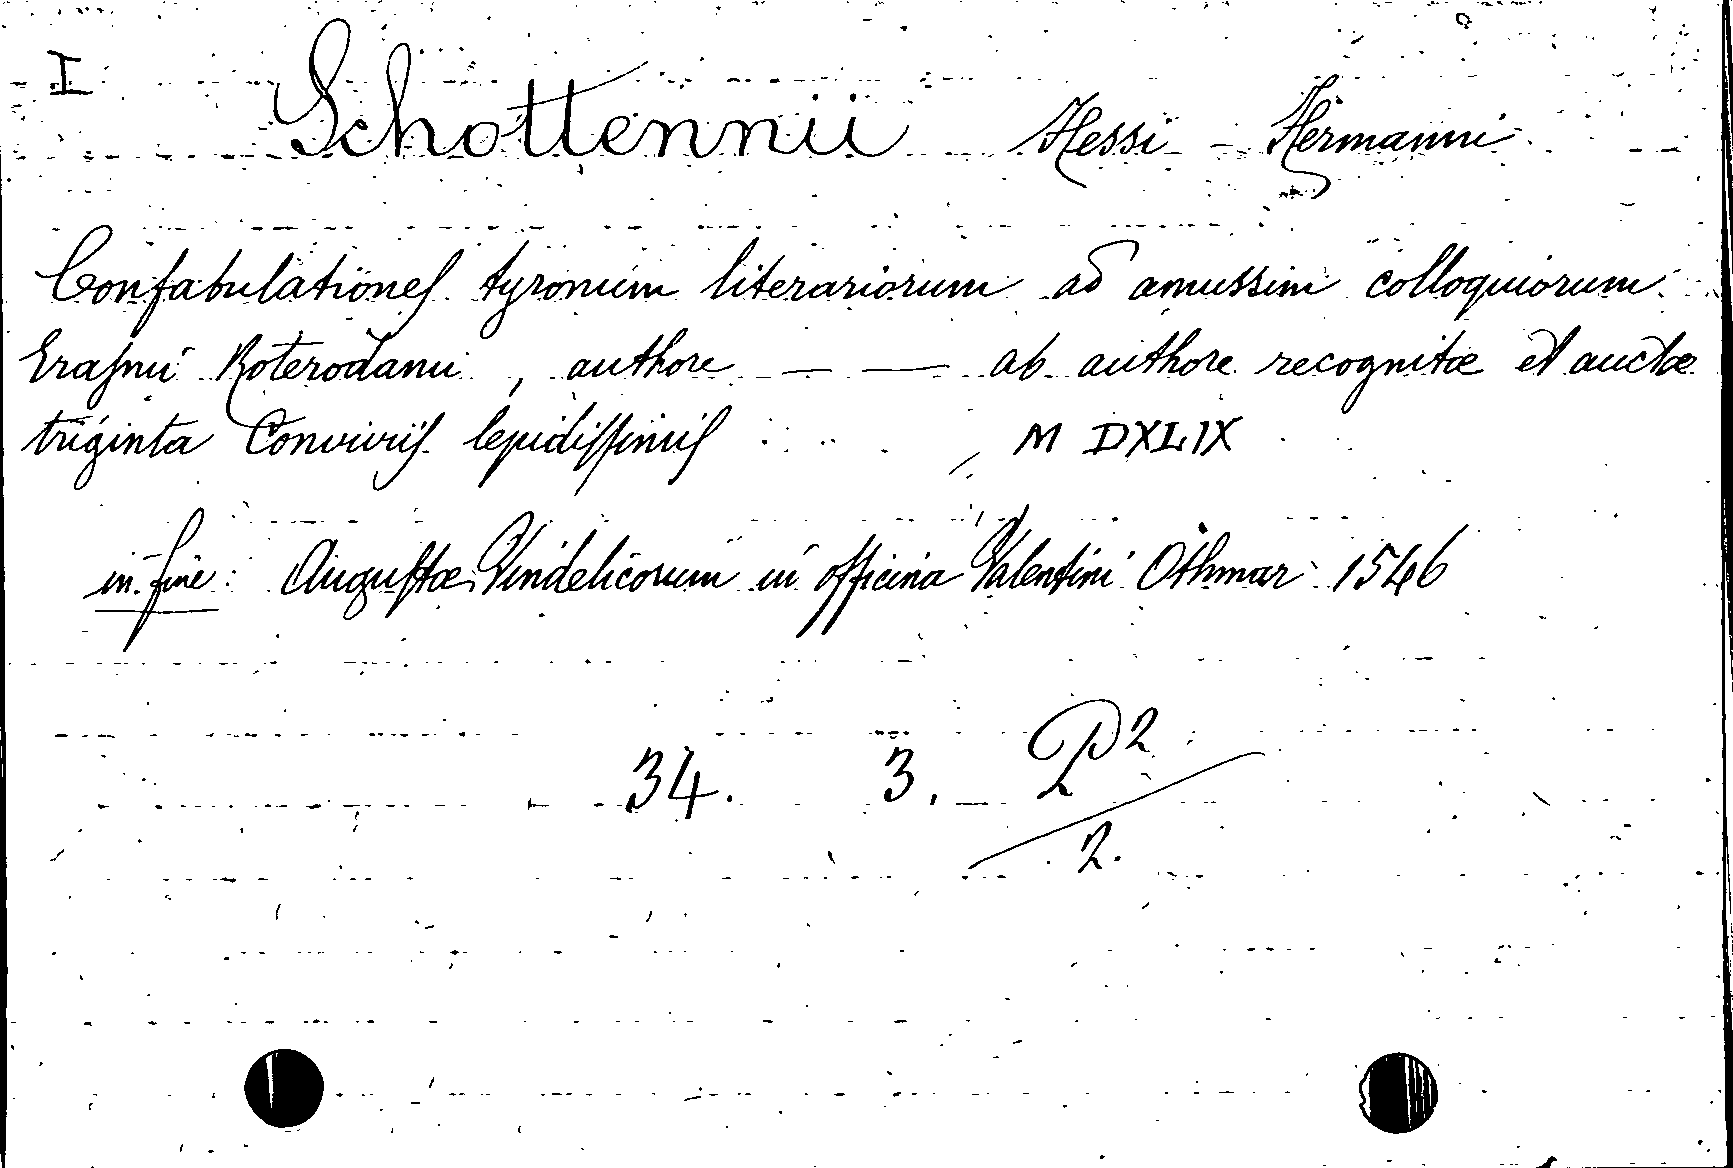 I Schottennii Hessi - Hermanni
Confabulationes tyronum literariorum ad amussim colloquiorum
Erasmi Roterodami, authore — — ab authore recognitæ et auctæ
triginta Conviviis lepidissimis . . . . , M DXLIX
in fine: Augustæ Vindelicorum in officina Valentini Othmar 1546
34. 3. P2
2.